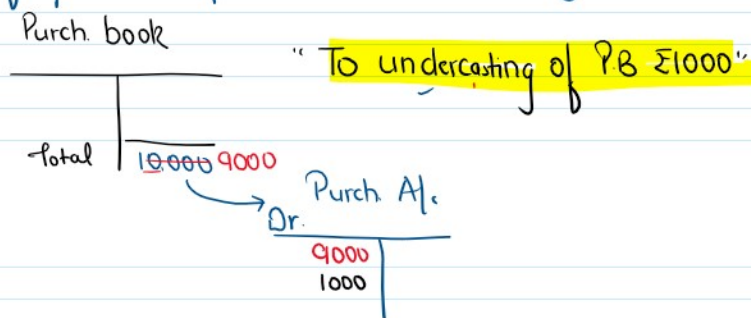 Purch. book
" To undercasting of P.B Σ1000 "
Total 10.000 9000
Purch. A/c
Dr.
9000
1000